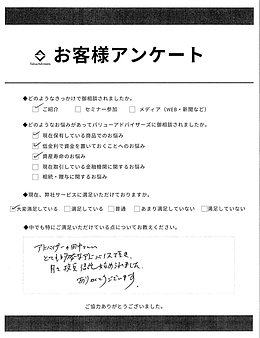 お客様アンケート
◆どのようなきっかけで御相談されましたか。
ご紹介 セミナー参加 メディア（WEB・新聞など）
◆どのようなお悩みがあってバリューアドバイザーズに御相談されましたか。
現在保有している商品でのお悩み
低金利で資金を置いておくことへのお悩み
資産寿命のお悩み
現在取引している金融機関に関するお悩み
相続・贈与に関するお悩み
◆現在、弊社サービスに満足いただけておりますか。
大変満足している 満足している 普通 あまり満足していない 満足していない
◆中でも特にご満足いただけている点についてお教えください。
アドバイザー
とても
ありがとうございます。
ご協力ありがとうございました。